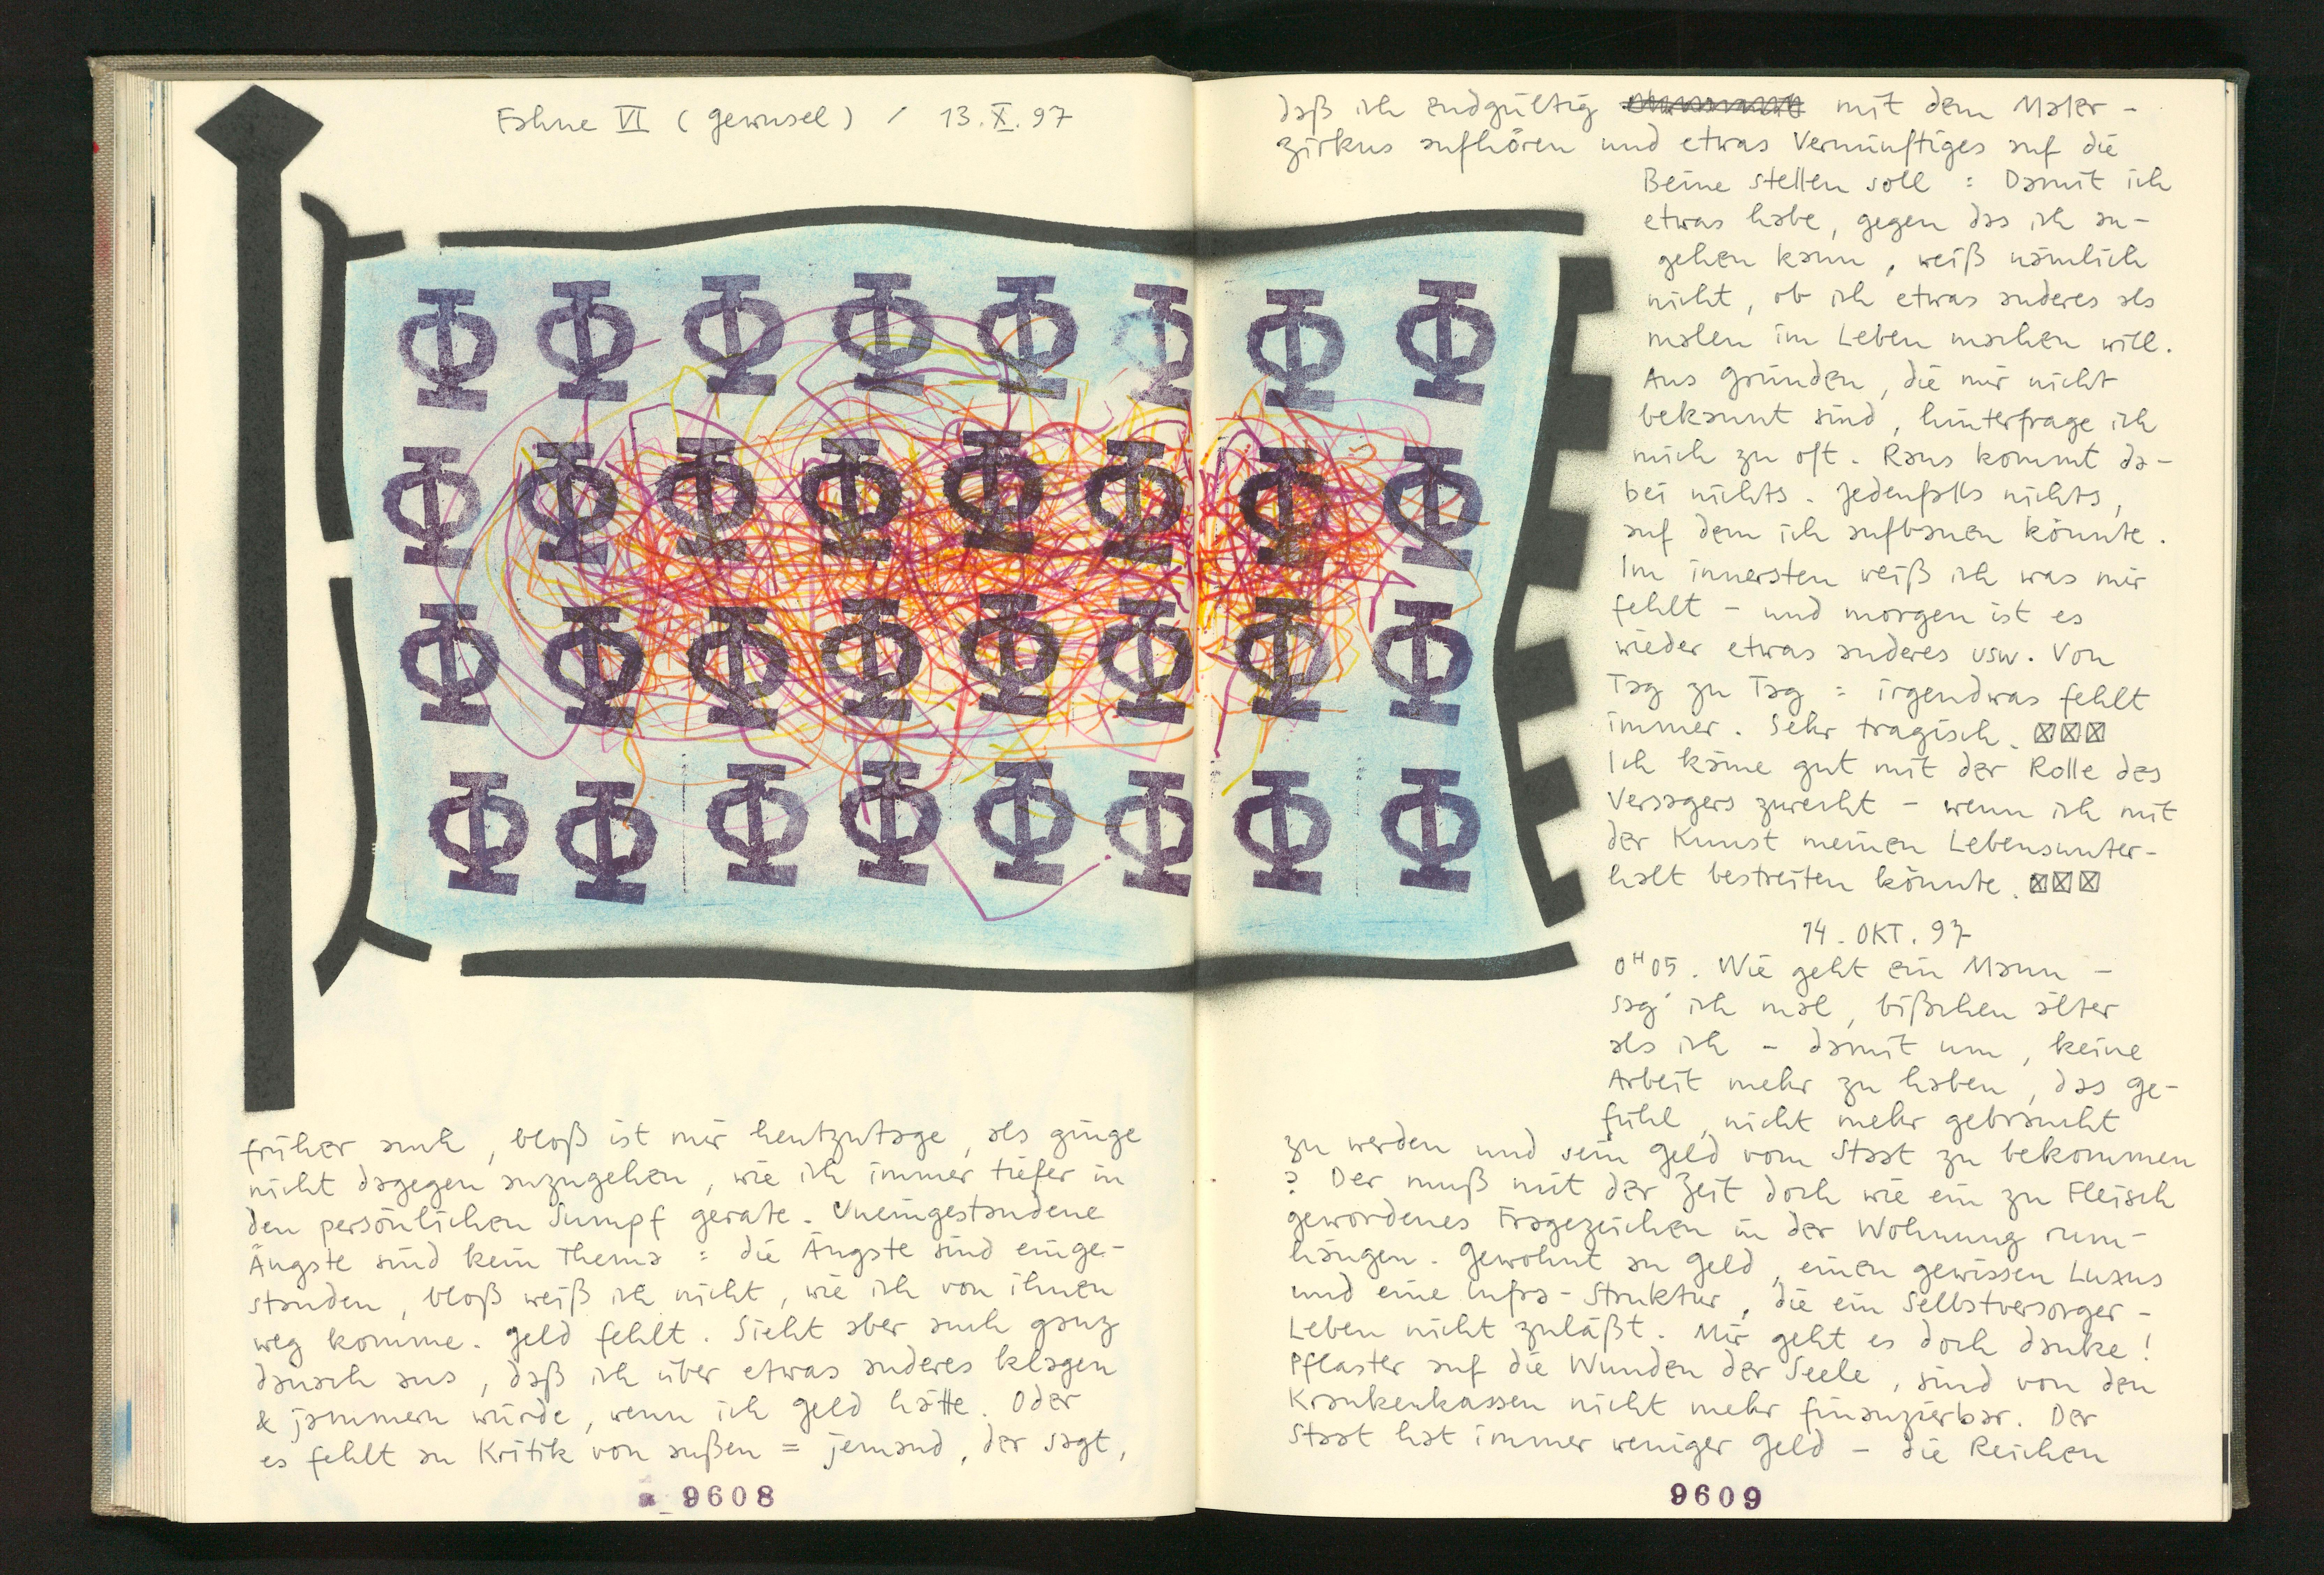 Fahne VI (Gewusel) / 13.X.97
früher auch, bloß ist mir heutzutage, als ginge
nicht dagegen anzugehen, wie ich immer tiefer in
den persönlichen Sumpf gerate. Uneingestandene
Ängste sind kein Thema : die Ängste sind einge-
standen, bloß weiß ich nicht, wie ich von ihnen
weg komme. Geld fehlt. Sieht aber auch ganz
danach aus, daß ich über etwas anderes klagen
& jammern würde, wenn ich Geld hätte. Oder
es fehlt an Kritik von außen = jemand, der sagt,
9608
daß ich endgültig mit dem Maler-
zirkus aufhören und etwas Vernünftiges auf die
Beine stellen soll : Damit ich
etwas habe, gegen das ich an-
gehen kann, weiß nämlich
nicht, ob ich etwas anderes als
malen im Leben machen will.
Aus Gründen, die mir nicht
bekannt sind, hinterfrage ich
mich zu oft. Raus kommt da-
bei nichts. Jedenfalls nichts,
auf dem ich aufbauen könnte.
Im innersten weiß ich was mir
fehlt - und morgen ist es
wieder etwas anderes usw. Von
Tag zu Tag : irgendwas fehlt
immer. Sehr tragisch. ☒☒☒
Ich käme gut mit der Rolle des
Versagers zurecht - wenn ich mit
der Kunst meinen Lebensunter-
halt bestreiten könnte. ☒☒☒
14. OKT. 97
0H05. Wie geht ein Mann -
sag' ich mal, bißchen älter
als ich - damit um, keine
Arbeit mehr zu haben, das Ge-
fühl, nicht mehr gebraucht
zu werden und sein Geld vom Staat zu bekommen
? Der muß mit der Zeit doch wie ein zu Fleisch
gewordenes Fragezeichen in der Wohnung rum-
hängen. Gewohnt an Geld, einen gewissen Luxus
und eine Infra-Struktur, die ein Selbstversorger-
Leben nicht zuläßt. Mir geht es doch danke!
Pflaster auf die Wunden der Seele, sind von den
Krankenkassen nicht mehr finanzierbar. Der
Staat hat immer weniger Geld - die Reichen
9609